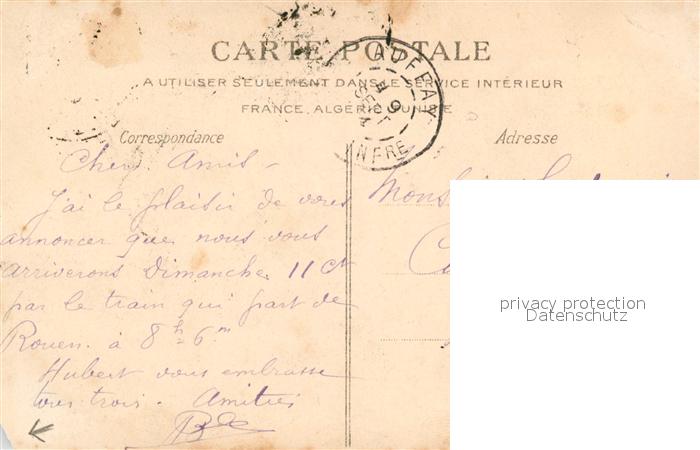 CARTE POSTALE
A UTILISER SEULEMENT DANS LE SERVICE INTÉRIEUR
FRANCE, ALGÉRIE, TUNISIE
Correspondance
Adresse
Chers Amis -
J'ai le plaisir de vous
annoncer que nous vous
arriverons Dimanche 11 ct
par le train qui part de
Rouen à 8h 6m
Hubert vous embrasse
tous trois. Amitiés
privacy protection
Datenschutz